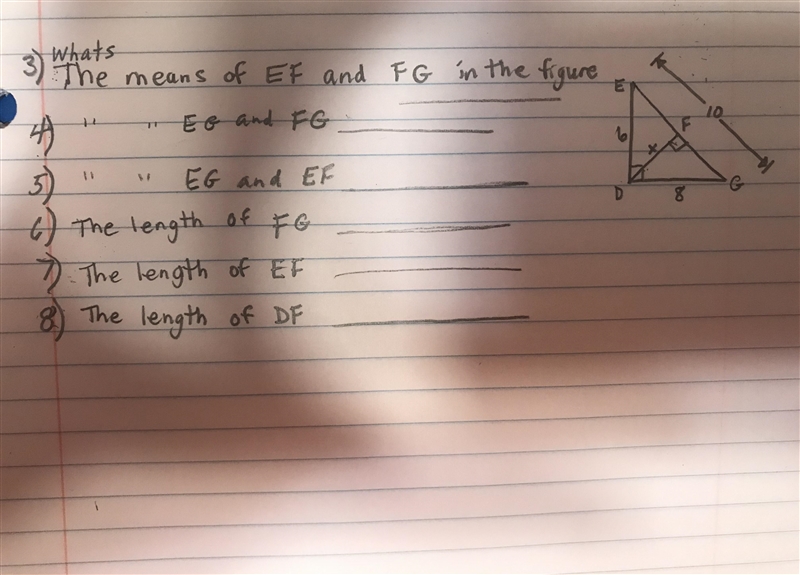 Whats
3) The means of EF and FG in the figure
4) " " EG and FG
5) " " EG and EF
6) The length of FG
7) The length of EF
8) The length of DF
E
10
F
6
x
D
8
G